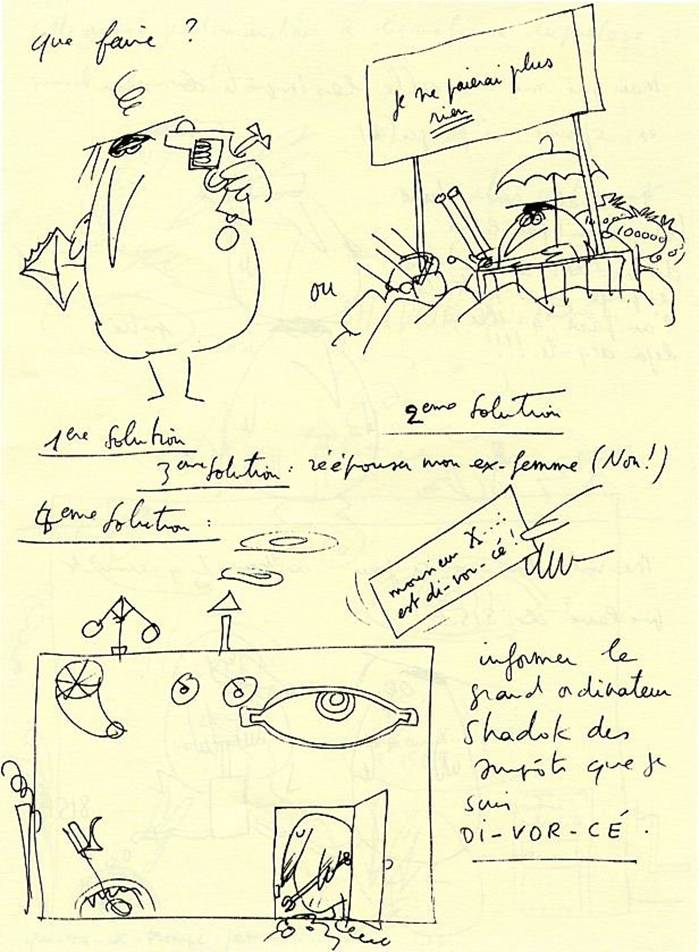 que faire ?
je ne paierai plus
rien
100000
ou
2eme solution
1ere solution
3eme solution : réépouser mon ex-femme (Non!)
4eme solution :
monsieur X....
est di-vor-cé !
informer le
grand ordinateur
Shadok des
impôts que je
suis
DI-VOR-CÉ.